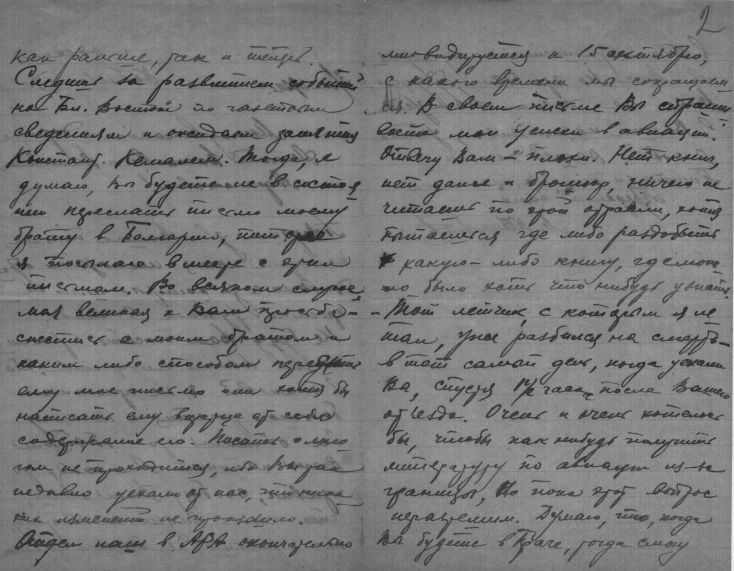 2
как раньше, так и теперь.
Следим за развитием событий
на Бл. Востоке по газетным
сведениям и ожидаем занятия
Констант. Кемалем. Тогда, я
думаю, Вы будете не в состоя-
нии переслать письмо моему
брату в Болгарию,
я посылаю вместе с этим
письмом. Во всяком случае
моя великая к Вам просьба –
снестись с моим братом и
каким либо способом передать
ему мое письмо или хотя бы
написать ему вкратце от себя
содержание его. Писать о мно-
гом не приходится, ибо Вы так
недавно уехали от нас,
изменений не произошло.
Отдел наш в АРА окончательно
ликвидируется к 15 октября,
с какого времени мы сокращаем-
ся. В своем письме Вы
мои успехи в авиации.
Отвечу Вам – плохи. Нет книг,
нет даже и брошюр, ничего не
читаешь по этой отрасли, хотя
пытаешься где либо раздобыть
какую-либо книгу, где мож-
но было хоть что нибудь узнать.
– Тот летчик, с которым я ле-
тал, уже разбился на смерть –
в тот самый день, когда уехали
Вы, спустя 1½ часа после Вашего
отъезда. Очень и очень хотелось
бы, чтобы как нибудь получить
литературу по авиации из-за
границы, но пока этот вопрос
неразрешим. Думаю, что, когда
Вы будете в Праге, тогда смогу